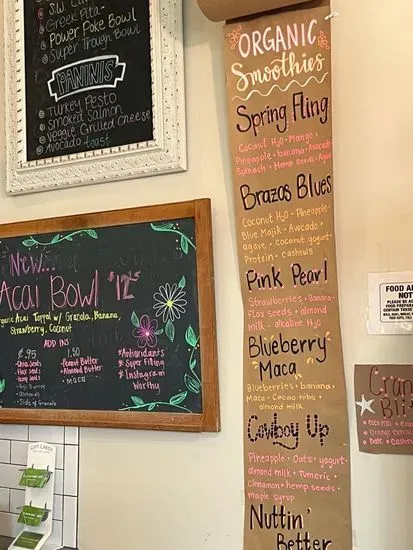 S.W. Cu
Greek Pita
Power Poke Bowl
Super Trough Bowl
PANINIS
Turkey Pesto
Smoked Salmon
Veggie Grilled Cheese
Avocado toast
New...
Acai Bowl $12
rganic Acai Topped w/ Granola, Banana,
Strawberry, Coconut
ADD INS
.95
Chia Seeds
Flax Seeds
Hemp Seeds
Goji Berries
Almonds
Side of Granola
1.50
Peanut Butter
Almond Butter
Maca
*Antioxidants
* Super Filling
* Instagram
Worthy
GIFT CARDS
ORGANIC
Smoothies
Spring Fling
Coconut H2O • Mango •
Pineapple • banana • Avocado
Spinach • Hemp Seeds • Agave
Brazos Blues
Coconut H2O • Pineapple
Blue Majik • Avocado •
agave • coconut yogurt •
Protein • cashews
Pink Pearl
Strawberries • Banana •
flax seeds • almond
milk • alkaline H2O
Blueberry
Maca
Blueberries • banana •
Maca • Cacao nibs •
almond milk
Cowboy Up
Pineapple • Oats • yogurt •
almond milk • Tumeric •
Cinnamon • hemp seeds •
maple syrup
Nuttin'
Better
FOOD AL
NOT
PLEASE BE AD
FOOD PREPARED
Cran
Bli